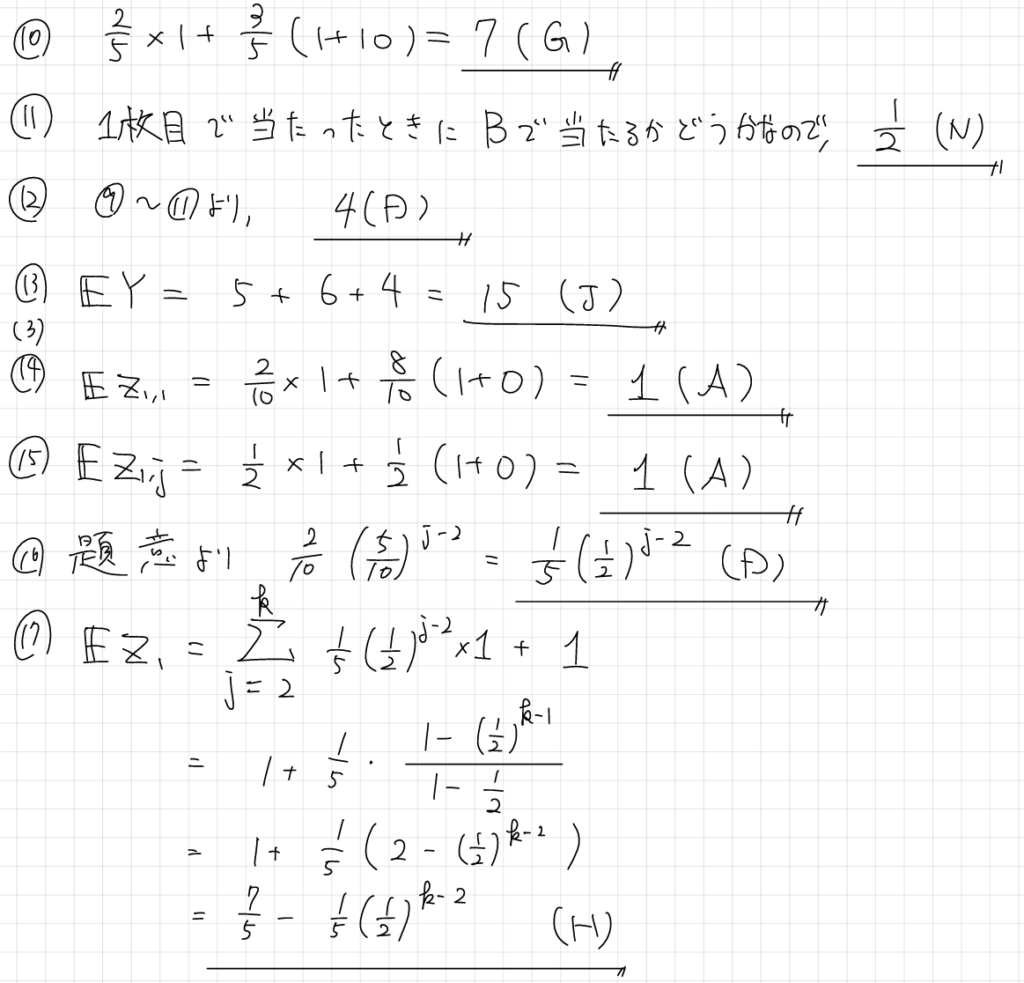 ⑩ 2/5 × 1 + 3/5 (1+10) = 7 (G)
⑪ 1枚目で当たったときにBで当たるかどうかなので, 1/2 (N)
⑫ ⑨~⑪より, 4(D)
⑬ EY = 5 + 6 + 4 = 15 (J)
(3)
⑭ EZ₁,₁ = 2/10 × 1 + 8/10 (1+0) = 1 (A)
⑮ EZ₁,j = 1/2 × 1 + 1/2 (1+0) = 1 (A)
⑯ 題意より 2/10 (5/10)^{j-2} = 1/5 (1/2)^{j-2} (D)
⑰ EZ₁ = Σ_{j=2}^{k} 1/5 (1/2)^{j-2} × 1 + 1
= 1 + 1/5 · (1-(1/2)^{k-1})/(1-1/2)
= 1 + 1/5 (2 - (1/2)^{k-2})
= 7/5 - 1/5 (1/2)^{k-2} (H)